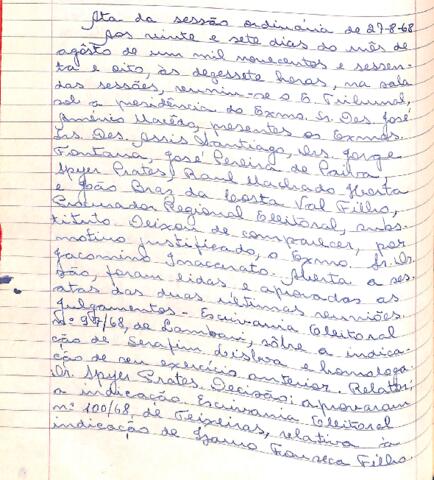 Ata da sessão ordinária de 27-8-68
Aos vinte e sete dias do mês de
agôsto de um mil novecentos e sessen-
ta e oito, às dezessete horas, na sala
das sessões, reuniu-se o E. Tribunal,
sob a presidência do Exmo. Sr. Des. José
Américo Macêdo, presentes os Exmos.
Srs. Des. Assis Santiago, Drs. Jorge
Fontana, José Pereira de Paiva,
Spyer Prates, Raul Machado Horta
e João Braz da Costa Val Filho,
Procurador Regional Eleitoral, subs-
tituto. Deixou de comparecer, por
motivo justificado, o Exmo. Sr. Dr.
Jacomino Inacarato. Aberta a ses-
são, foram lidas e aprovadas as
atas das duas últimas reuniões.
Julgamentos - Escrivania Eleitoral
nº 97/68, de Lambari, sôbre a indica-
ção de Serafim Lisboa e homologa-
ção de seu exercício anterior. Relator:
Dr. Spyer Prates. Decisão: aprovaram
a indicação. Escrivania Eleitoral
nº 100/68, de Teixeiras, relativa à
indicação de Fonseca Filho.